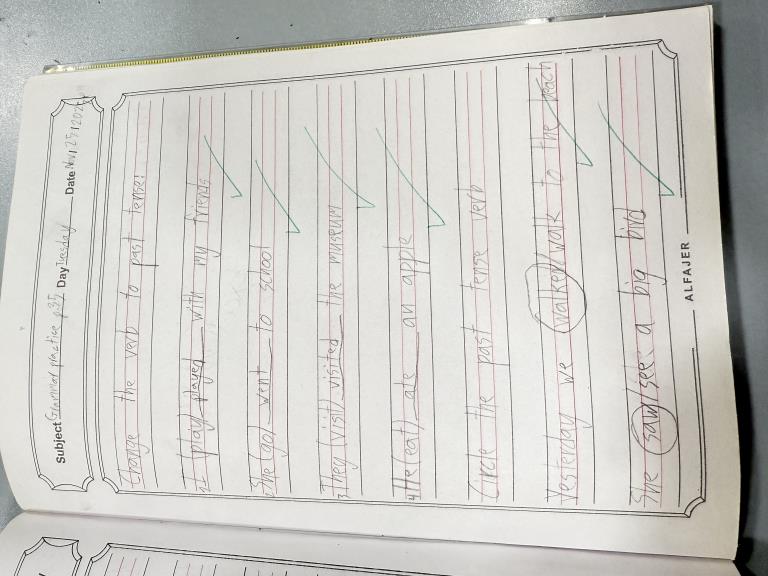 Subject Grammar practice p35 Day Tuesday Date Nov 25 202
Change the verb to past tense:
1 I (play) played with my friends
2 She (go) went to school
3 They (visit) visited the museum
4 He (eat) ate an apple
Circle the past tense verb
Yesterday we (walked)/walk to the beach
She (saw)/see a big bird
ALFAJER